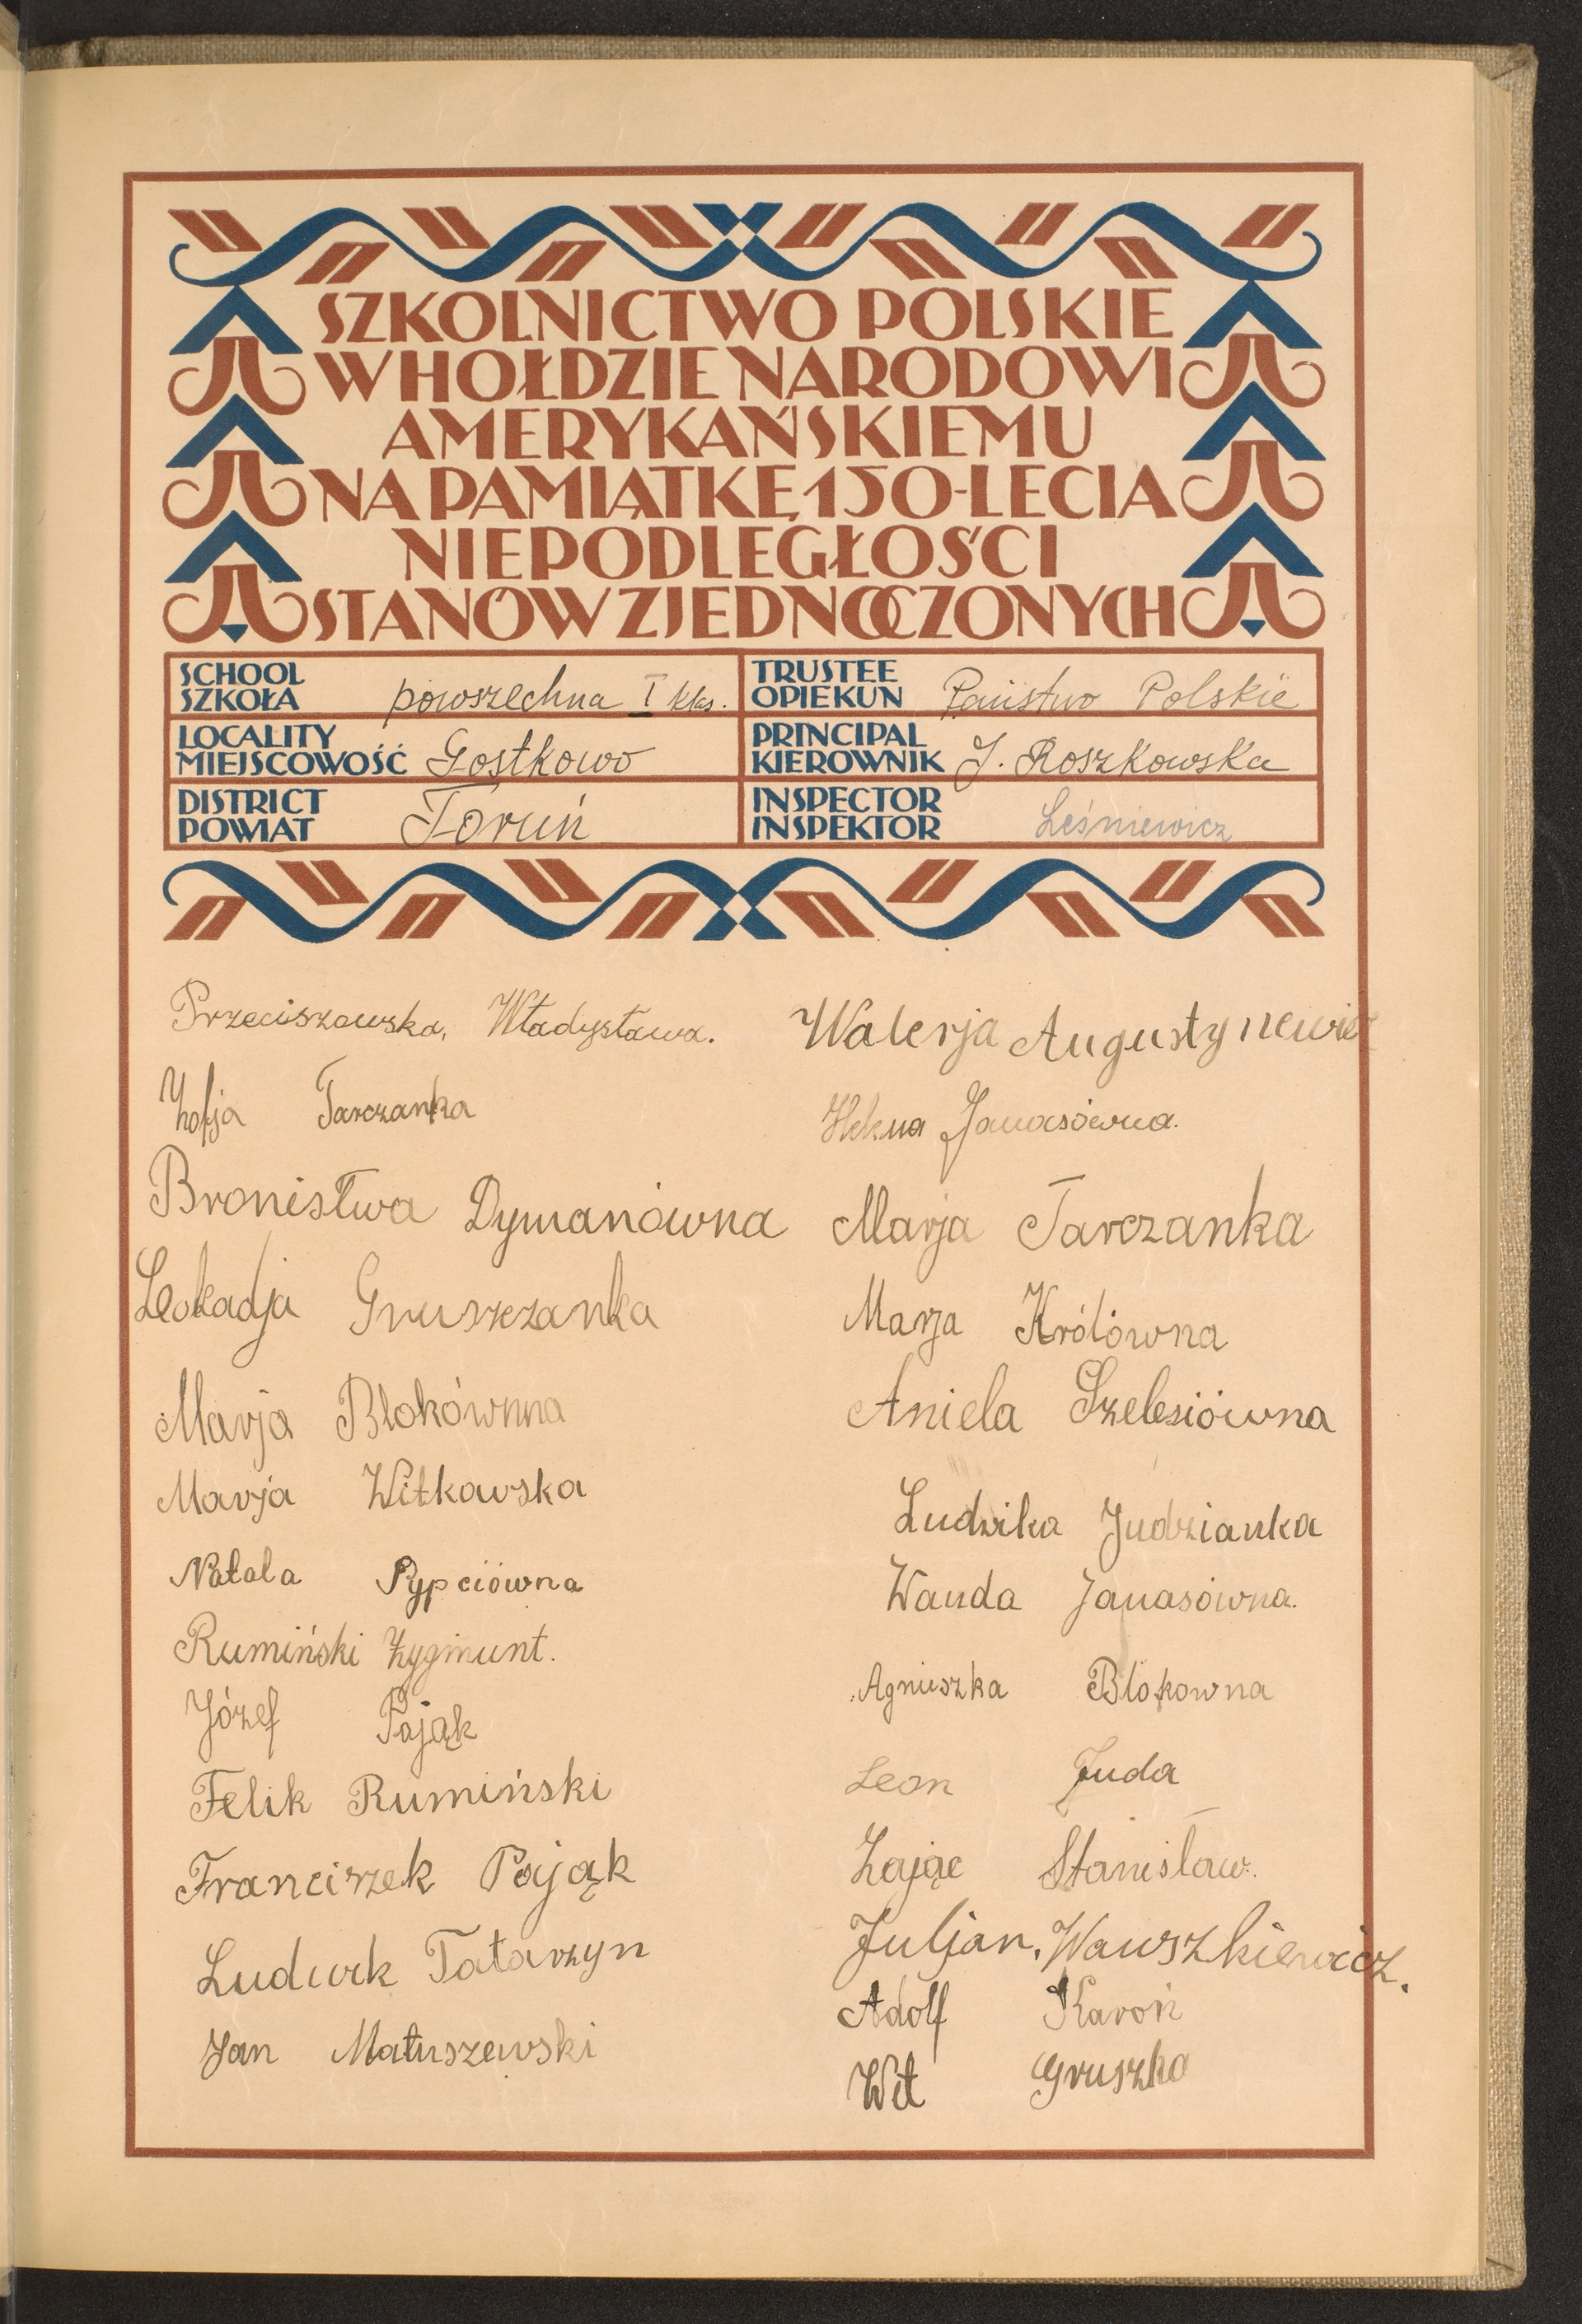 SZKOLNICTWO POLSKIE
W HOŁDZIE NARODOWI
AMERYKAŃSKIEMU
NA PAMIĄTKĘ 150-LECIA
NIEPODLEGŁOŚCI
STANÓW ZJEDNOCZONYCH
SCHOOL
SZKOŁA powszechna I klas.
TRUSTEE
OPIEKUN Państwo Polskie
LOCALITY
MIEJSCOWOŚĆ Gostkowo
PRINCIPAL
KIEROWNIK J. Roszkowska
DISTRICT
POWIAT Toruń
INSPECTOR
INSPEKTOR Leśniewicz
Przeciszowska, Władysława.
Zofja Tarczanka
Bronisłwa Dymanówna
Leokadja Gruszczanka
Marja Blokównna
Marja Witkowska
Natala Pypciówna
Rumiński Zygmunt.
Józef Pająk
Felik Rumiński
Franciszek Pająk
Ludwik Tatarzyn
Jan Matuszewski
Walerja Augustynewicz
Helena Janasówna.
Marja Tarczanka
Marja Królówna
Aniela Szelesiówna
Ludwika Judzianka
Wanda Janasówna.
Agnieszka Blokowna
Leon Juda
Zając Stanisław.
Juljan. Wawszkiewicz.
Adolf Karoń
Wit Gruszka